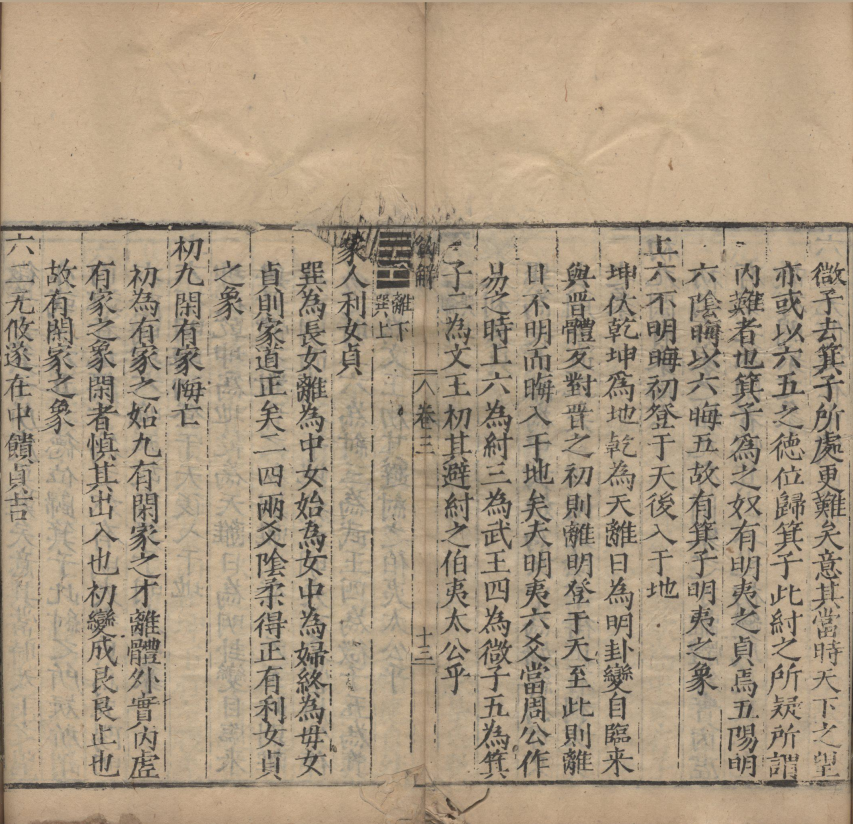 微子去箕子所處更難矣意其當時天下之望
亦或以六五之德位歸箕子此紂之所疑所謂
內難者也箕子為之奴有明夷之貞焉五陽明
六陰晦以六晦五故有箕子明夷之象
上六不明晦初登于天後入于地
坤伏乾坤為地乾為天離日為明卦變自臨來
與晉體反對晉之初則離明登于天至此則離
日不明而晦入于地矣夫明夷六爻當周公作
易之時上六為紂三為武王四為微子五為箕
子二為文王初其避紂之伯夷太公乎
卷三
十三
離下
巽上
家人利女貞
巽為長女離為中女始為女中為婦終為母女
貞則家道正矣二四兩爻陰柔得正有利女貞
之象
初九閑有家悔亡
初為有家之始九有閑家之才離體外實內虛
有家之象閑者慎其出入也初變成艮艮止也
故有閑家之象
六二无攸遂在中饋貞吉